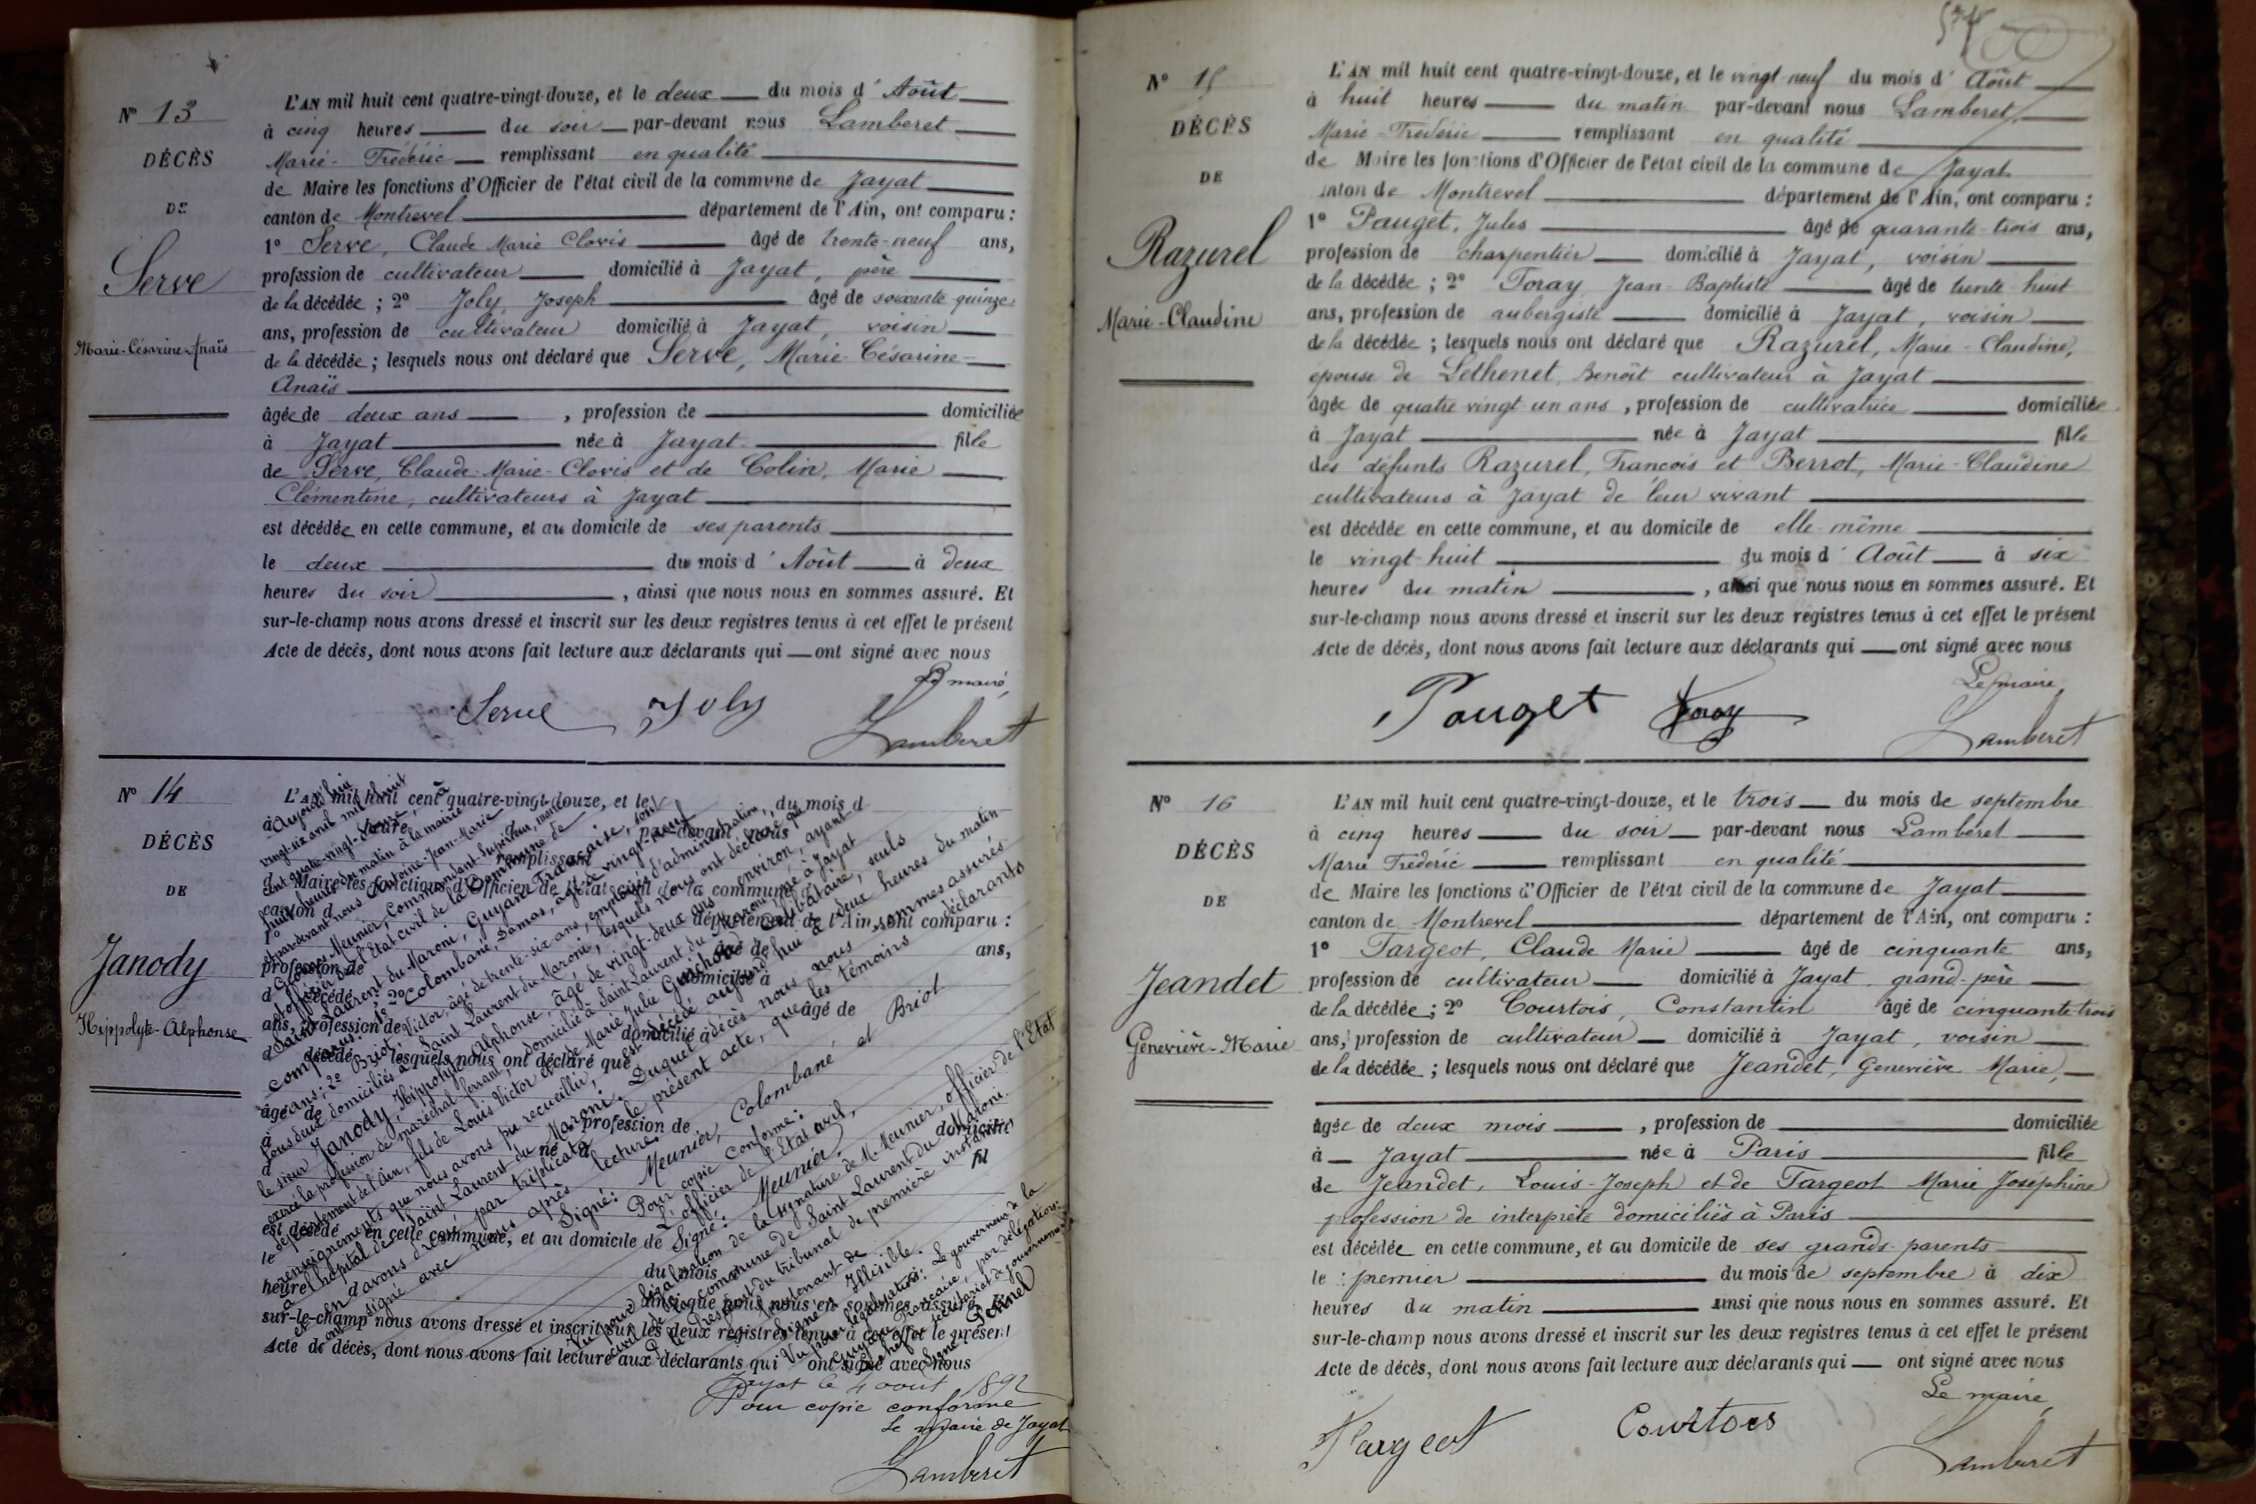 Nº 13
DÉCÈS
DE
Serve
Marie-Césarine-Anaïs
L'AN mil huit cent quatre-vingt-douze, et le deux du mois d'Août
à cinq heures du soir par-devant nous Lamberet
Marie-Frédéric remplissant en qualité
de Maire les fonctions d'Officier de l'état civil de la commune de Jayat
canton de Montrevel département de l'Ain, ont comparu :
1º Serve, Claude Marie Clovis âgé de trente-neuf ans,
profession de cultivateur domicilié à Jayat, père
de la décédée ; 2º Joly Joseph âgé de soixante quinze
ans, profession de cultivateur domicilié à Jayat, voisin
de la décédée ; lesquels nous ont déclaré que Serve, Marie Césarine-
Anaïs
âgée de deux ans , profession de domiciliée
à Jayat née à Jayat fille
de Serve, Claude-Marie-Clovis et de Colin, Marie
Clémentine, cultivateurs à Jayat
est décédée en cette commune, et au domicile de ses parents
le deux du mois d'Août à deux
heures du soir , ainsi que nous nous en sommes assuré. Et
sur-le-champ nous avons dressé et inscrit sur les deux registres tenus à cet effet le présent
Acte de décès, dont nous avons fait lecture aux déclarants qui ont signé avec nous
Le maire,
Serve Joly Lamberet
Nº 14
DÉCÈS
DE
Janody
Hippolyte-Alphonse
L'AN mil huit cent quatre-vingt-douze, et le du mois d
Aujourd'hui
vingt-six avril mil huit
cent quatre-vingt-douze, à
huit heures du matin à la mairie
et par-devant nous Antoine-Jean-Marie
Georges Meunier, Commandant Supérieur, maire
et officier de l'Etat civil de la Commune de
Saint Laurent du Maroni, Guyane Française, sont
comparus: 1º Colombané, Damas, âgé de vingt-neuf
ans; 2º Briot, Victor, âgé de trente-six ans, employés d'administration,
tous deux domiciliés à Saint Laurent du Maroni, lesquels nous ont déclaré que
le sieur Janody, Hippolyte Alphonse, âgé de vingt-deux ans environ, ayant
exercé la profession de maréchal ferrant, domicilié à Saint Laurent du Maroni né à Jayat
département de l'Ain, fils de Louis Victor et de Marie Julie Guichard célibataire, seuls
renseignements que nous avons pu recueillir, est décédé aujourd'hui à deux heures du matin
à l'hôpital de Saint Laurent du Maroni. Duquel décès nous nous sommes assurés
et en avons dressé par triplicata le présent acte, que les témoins déclarants
ont signé avec nous après lecture.
Signé: Meunier, Colombané et Briot
Pour copie conforme:
L'officier de l'Etat civil,
Signé: Meunier.
Vu pour légalisation de la signature de M. Meunier, officier de l'Etat
civil de la commune de Saint Laurent du Maroni.
P. le Président du tribunal de première instance
Le lieutenant de
Signé: Illisible.
Vu pour légalisation: Le gouverneur de la
Guyane Française, par délégation:
Le chef du secrétariat du gouvernement
Signé:
remplissant par-devant nous
de Maire les fonctions d'Officier de l'état civil de la commune d
canton d département de l'Ain, ont comparu :
1º âgé de ans,
profession de domicilié à
d décédé ; 2º âgé de
ans, profession de domicilié à
d décédé ; lesquels nous ont déclaré que
âgé de profession de domicilié
à né à fil
est décédé en cette commune, et au domicile de
le du mois
heure ainsi que nous nous en sommes assuré. Et
sur-le-champ nous avons dressé et inscrit sur les deux registres tenus à cet effet le présent
Acte de décès, dont nous avons fait lecture aux déclarants qui ont signé avec nous
Jayat le 4 août 1892
Pour copie conforme
Le maire de Jayat
Lamberet
Nº 15
DÉCÈS
DE
Razurel
Marie-Claudine
L'AN mil huit cent quatre-vingt-douze, et le vingt-neuf du mois d'Août
à huit heures du matin par-devant nous Lamberet,
Marie-Frédéric remplissant en qualité
de Maire les fonctions d'Officier de l'état civil de la commune de Jayat
canton de Montrevel département de l'Ain, ont comparu :
1º Pauget, Jules âgé de quarante-trois ans,
profession de charpentier domicilié à Jayat, voisin
de la décédée ; 2º Foray Jean-Baptiste âgé de trente-huit
ans, profession de aubergiste domicilié à Jayat, voisin
de la décédée ; lesquels nous ont déclaré que Razurel, Marie-Claudine,
épouse de Léthenet, Benoît cultivateur à Jayat
âgée de quatre vingt un ans, profession de cultivatrice domiciliée
à Jayat née à Jayat fille
des défunts Razurel, François et Berrot, Marie-Claudine
cultivateurs à Jayat de leur vivant
est décédée en cette commune, et au domicile de elle-même
le vingt-huit du mois d'Août à six
heures du matin , ainsi que nous nous en sommes assuré. Et
sur-le-champ nous avons dressé et inscrit sur les deux registres tenus à cet effet le présent
Acte de décès, dont nous avons fait lecture aux déclarants qui ont signé avec nous
Le maire,
Pauget Foray Lamberet
Nº 16
DÉCÈS
DE
Jeandet
Geneviève-Marie
L'AN mil huit cent quatre-vingt-douze, et le trois du mois de septembre
à cinq heures du soir par-devant nous Lamberet
Marie Frédéric remplissant en qualité
de Maire les fonctions d'Officier de l'état civil de la commune de Jayat
canton de Montrevel département de l'Ain, ont comparu :
1º Targeot, Claude Marie âgé de cinquante ans,
profession de cultivateur domicilié à Jayat grand-père
de la décédée ; 2º Courtois, Constantin âgé de cinquante-trois
ans, profession de cultivateur domicilié à Jayat, voisin
de la décédée ; lesquels nous ont déclaré que Jeandet, Geneviève Marie,
âgée de deux mois , profession de domiciliée
à Jayat née à Paris fille
de Jeandet, Louis-Joseph et de Targeot Marie Joséphine
profession de interprète domiciliés à Paris
est décédée en cette commune, et au domicile de ses grands-parents
le premier du mois de septembre à dix
heures du matin ainsi que nous nous en sommes assuré. Et
sur-le-champ nous avons dressé et inscrit sur les deux registres tenus à cet effet le présent
Acte de décès, dont nous avons fait lecture aux déclarants qui ont signé avec nous
Le maire,
Targeot Courtois Lamberet